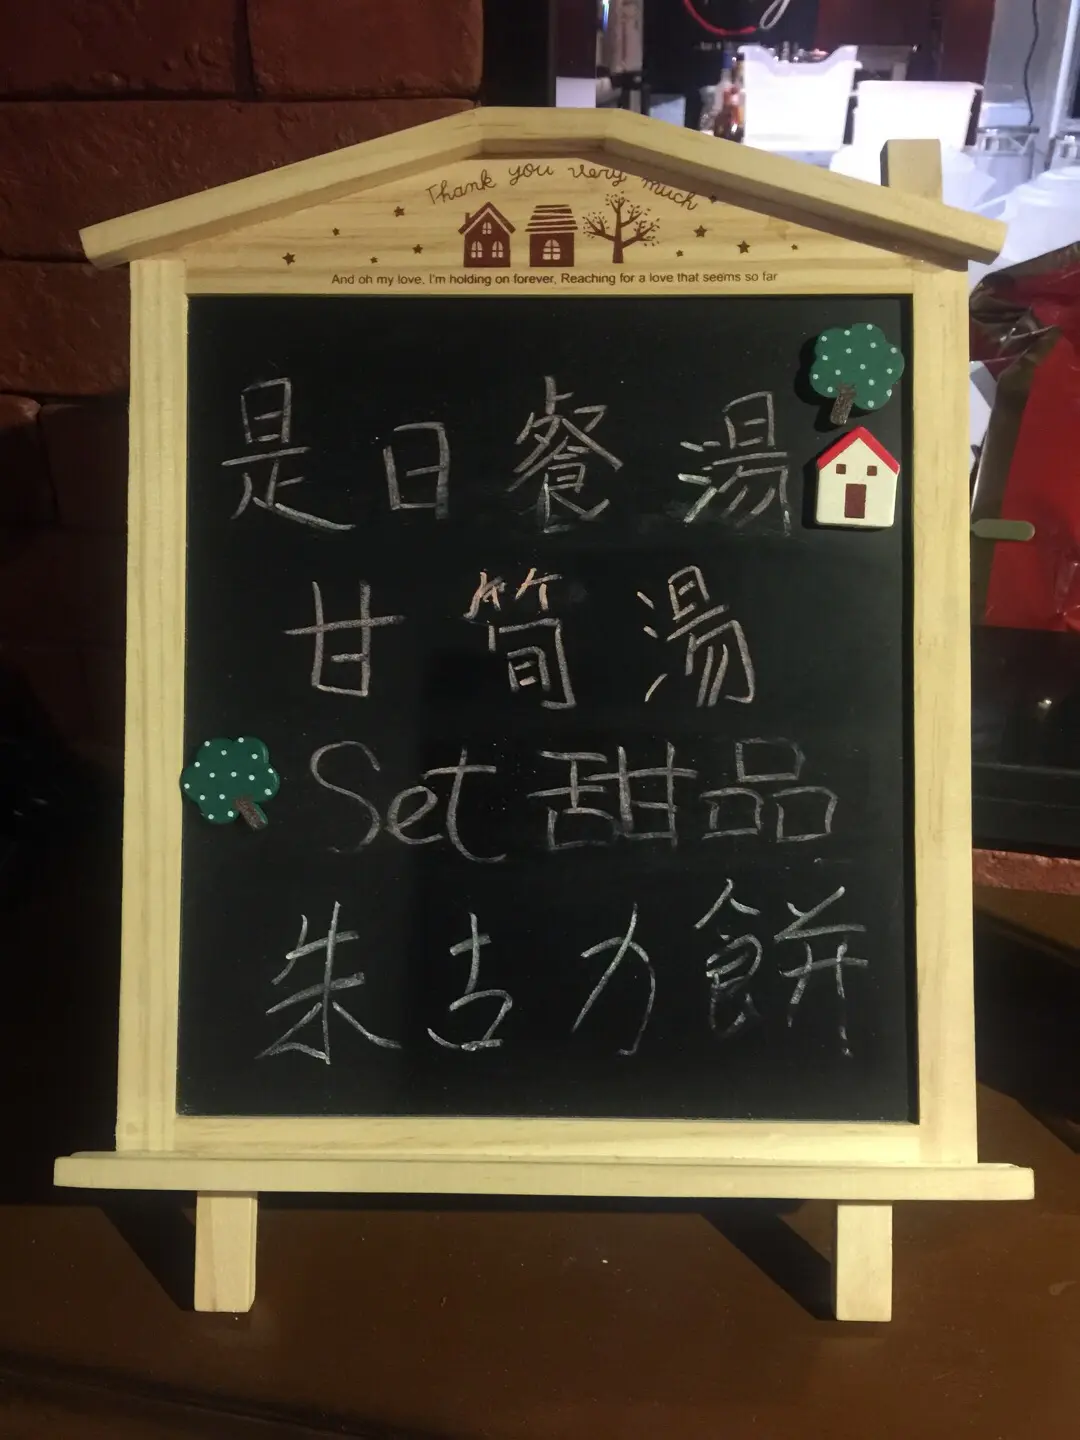 Thank you very much
And oh my love, I'm holding on forever, Reaching for a love that seems so far
是日餐湯
甘筍湯
Set 甜品
朱古力餅